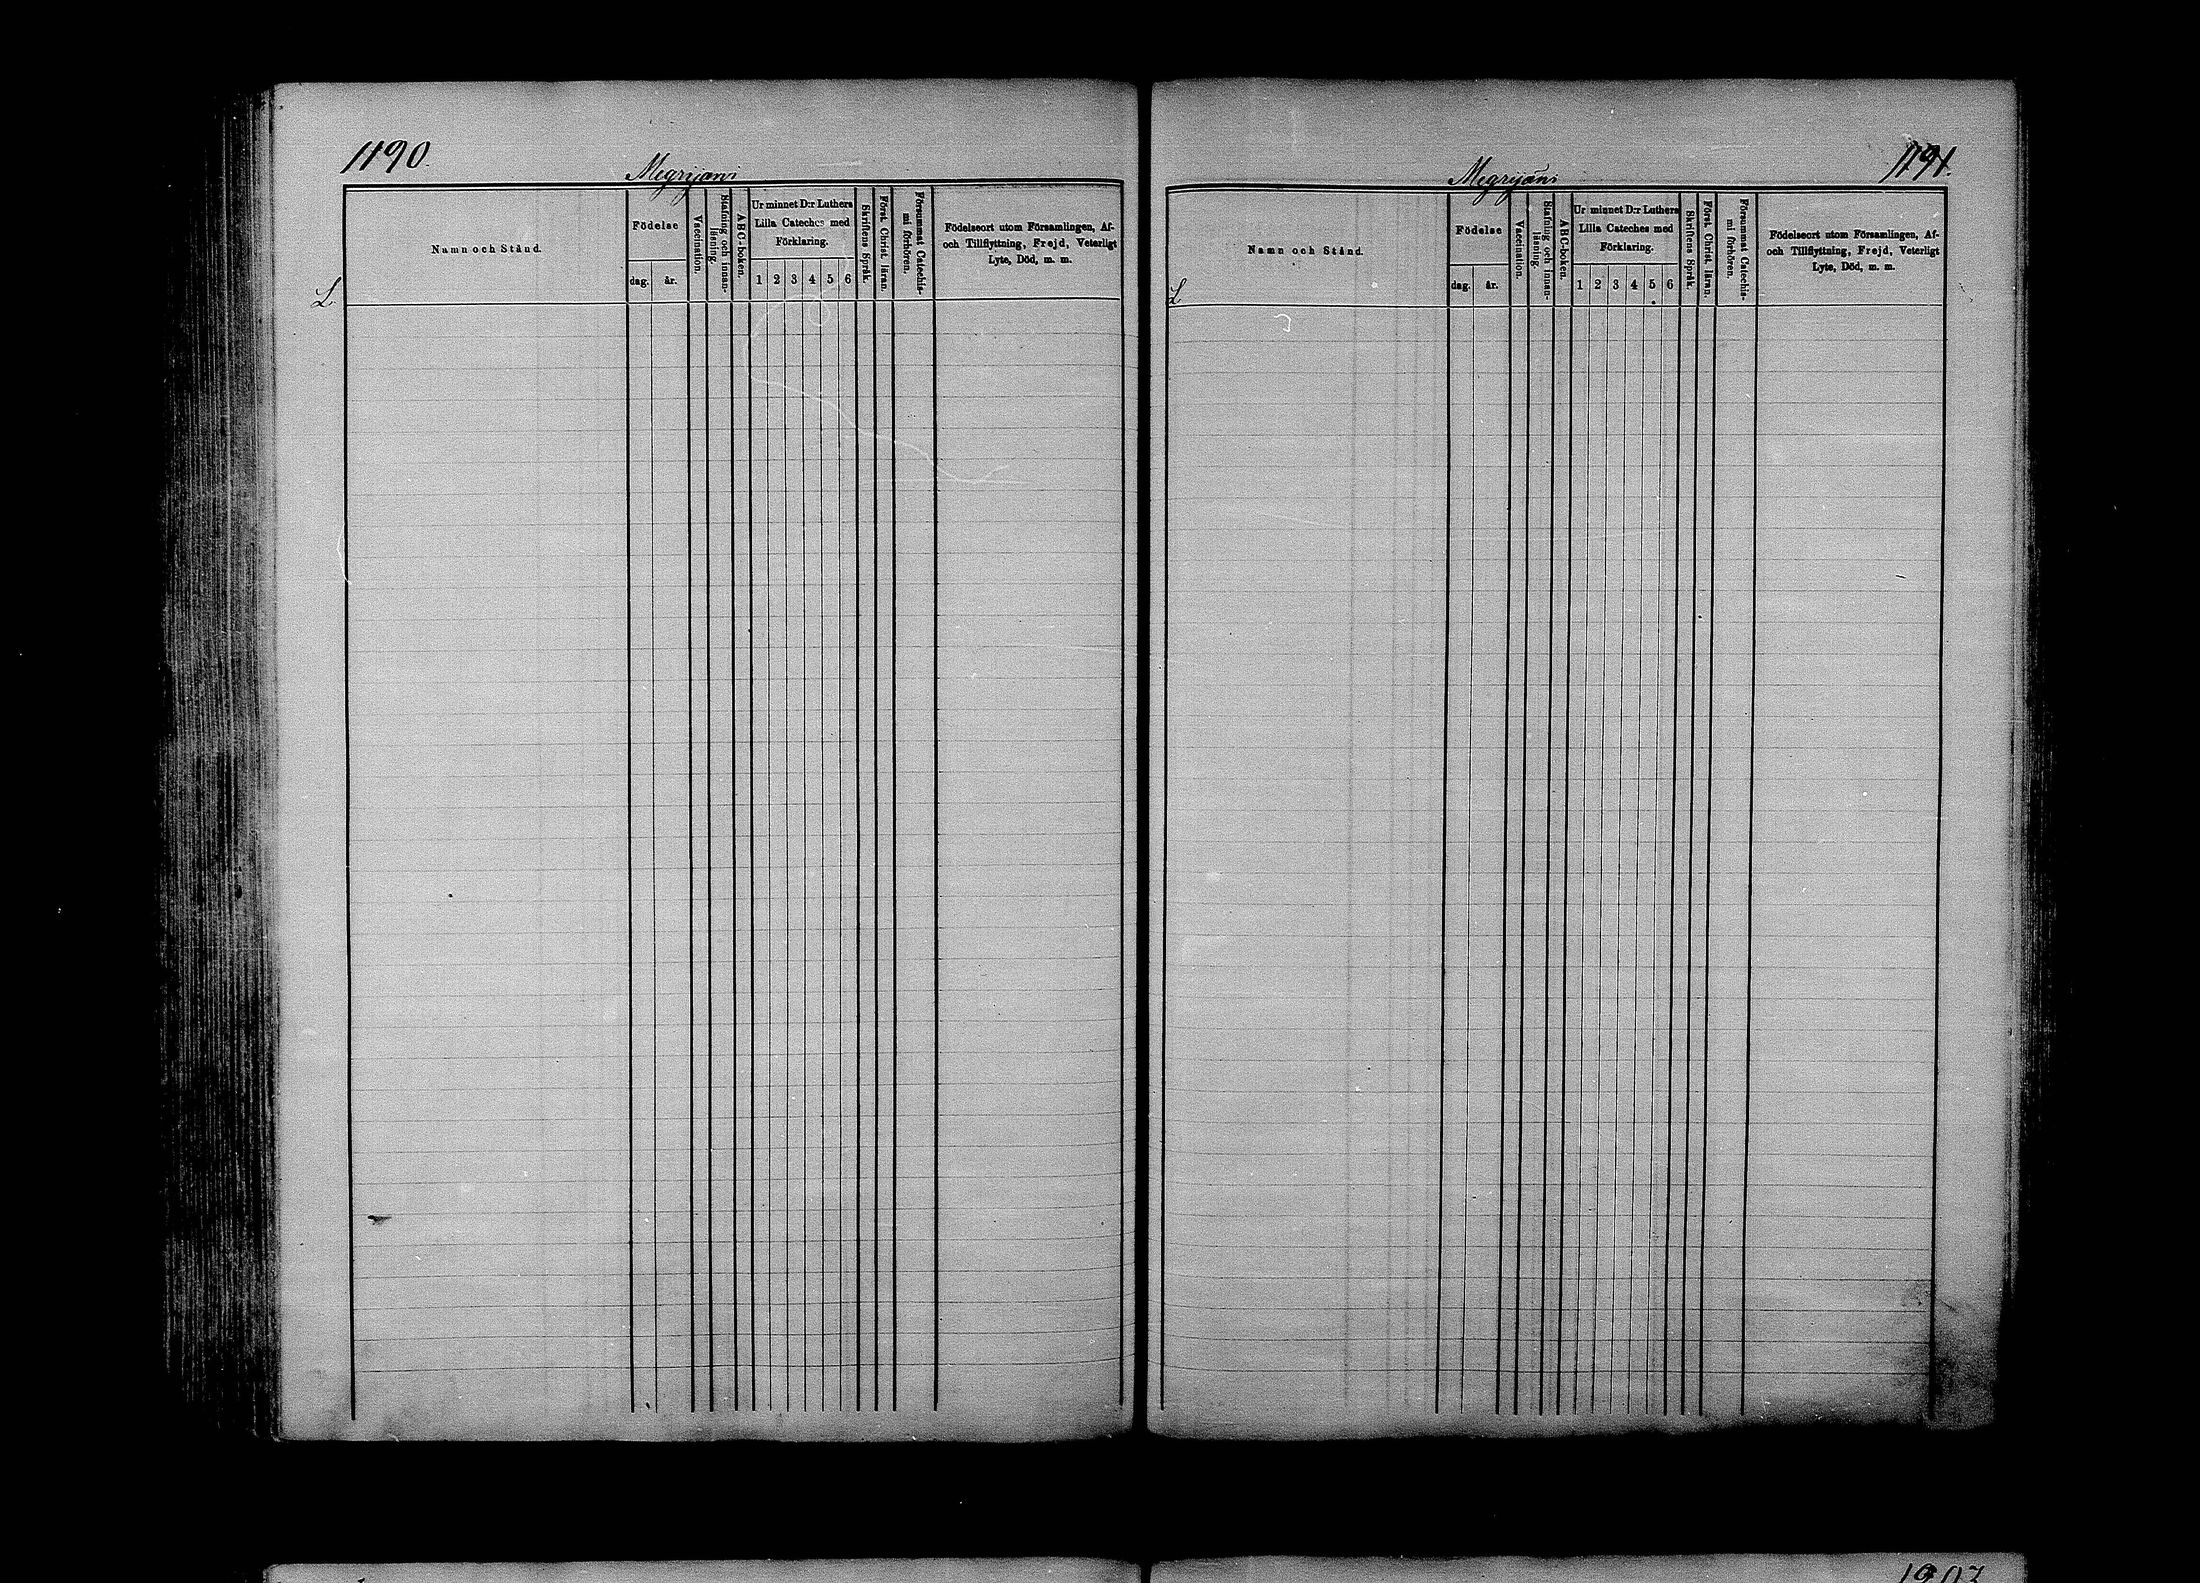 1190.
Megrijärvi
Namn och Stånd.
Födelse
dag. år.
Vaccination.
Stafning och innan-
läsning.
ABC-boken.
Ur minnet D:r Luthers
Lilla Cateches med
Förklaring.
1 2 3 4 5 6
Skriftens Språk.
Först. Christ. läran.
Försummat Catechis-
mi förhören.
Födelseort utom Församlingen, Af-
och Tillflyttning, Frejd, Veterligt
Lyte, Död, m. m.
L
1191.
Megrijärvi
Namn och Stånd.
Födelse
dag. år.
Vaccination.
Stafning och innan-
läsning.
ABC-boken.
Ur minnet D:r Luthers
Lilla Cateches med
Förklaring.
1 2 3 4 5 6
Skriftens Språk.
Först. Christ. läran.
Försummat Catechis-
mi förhören.
Födelseort utom Församlingen, Af-
och Tillflyttning, Frejd, Veterligt
Lyte, Död, m. m.
L